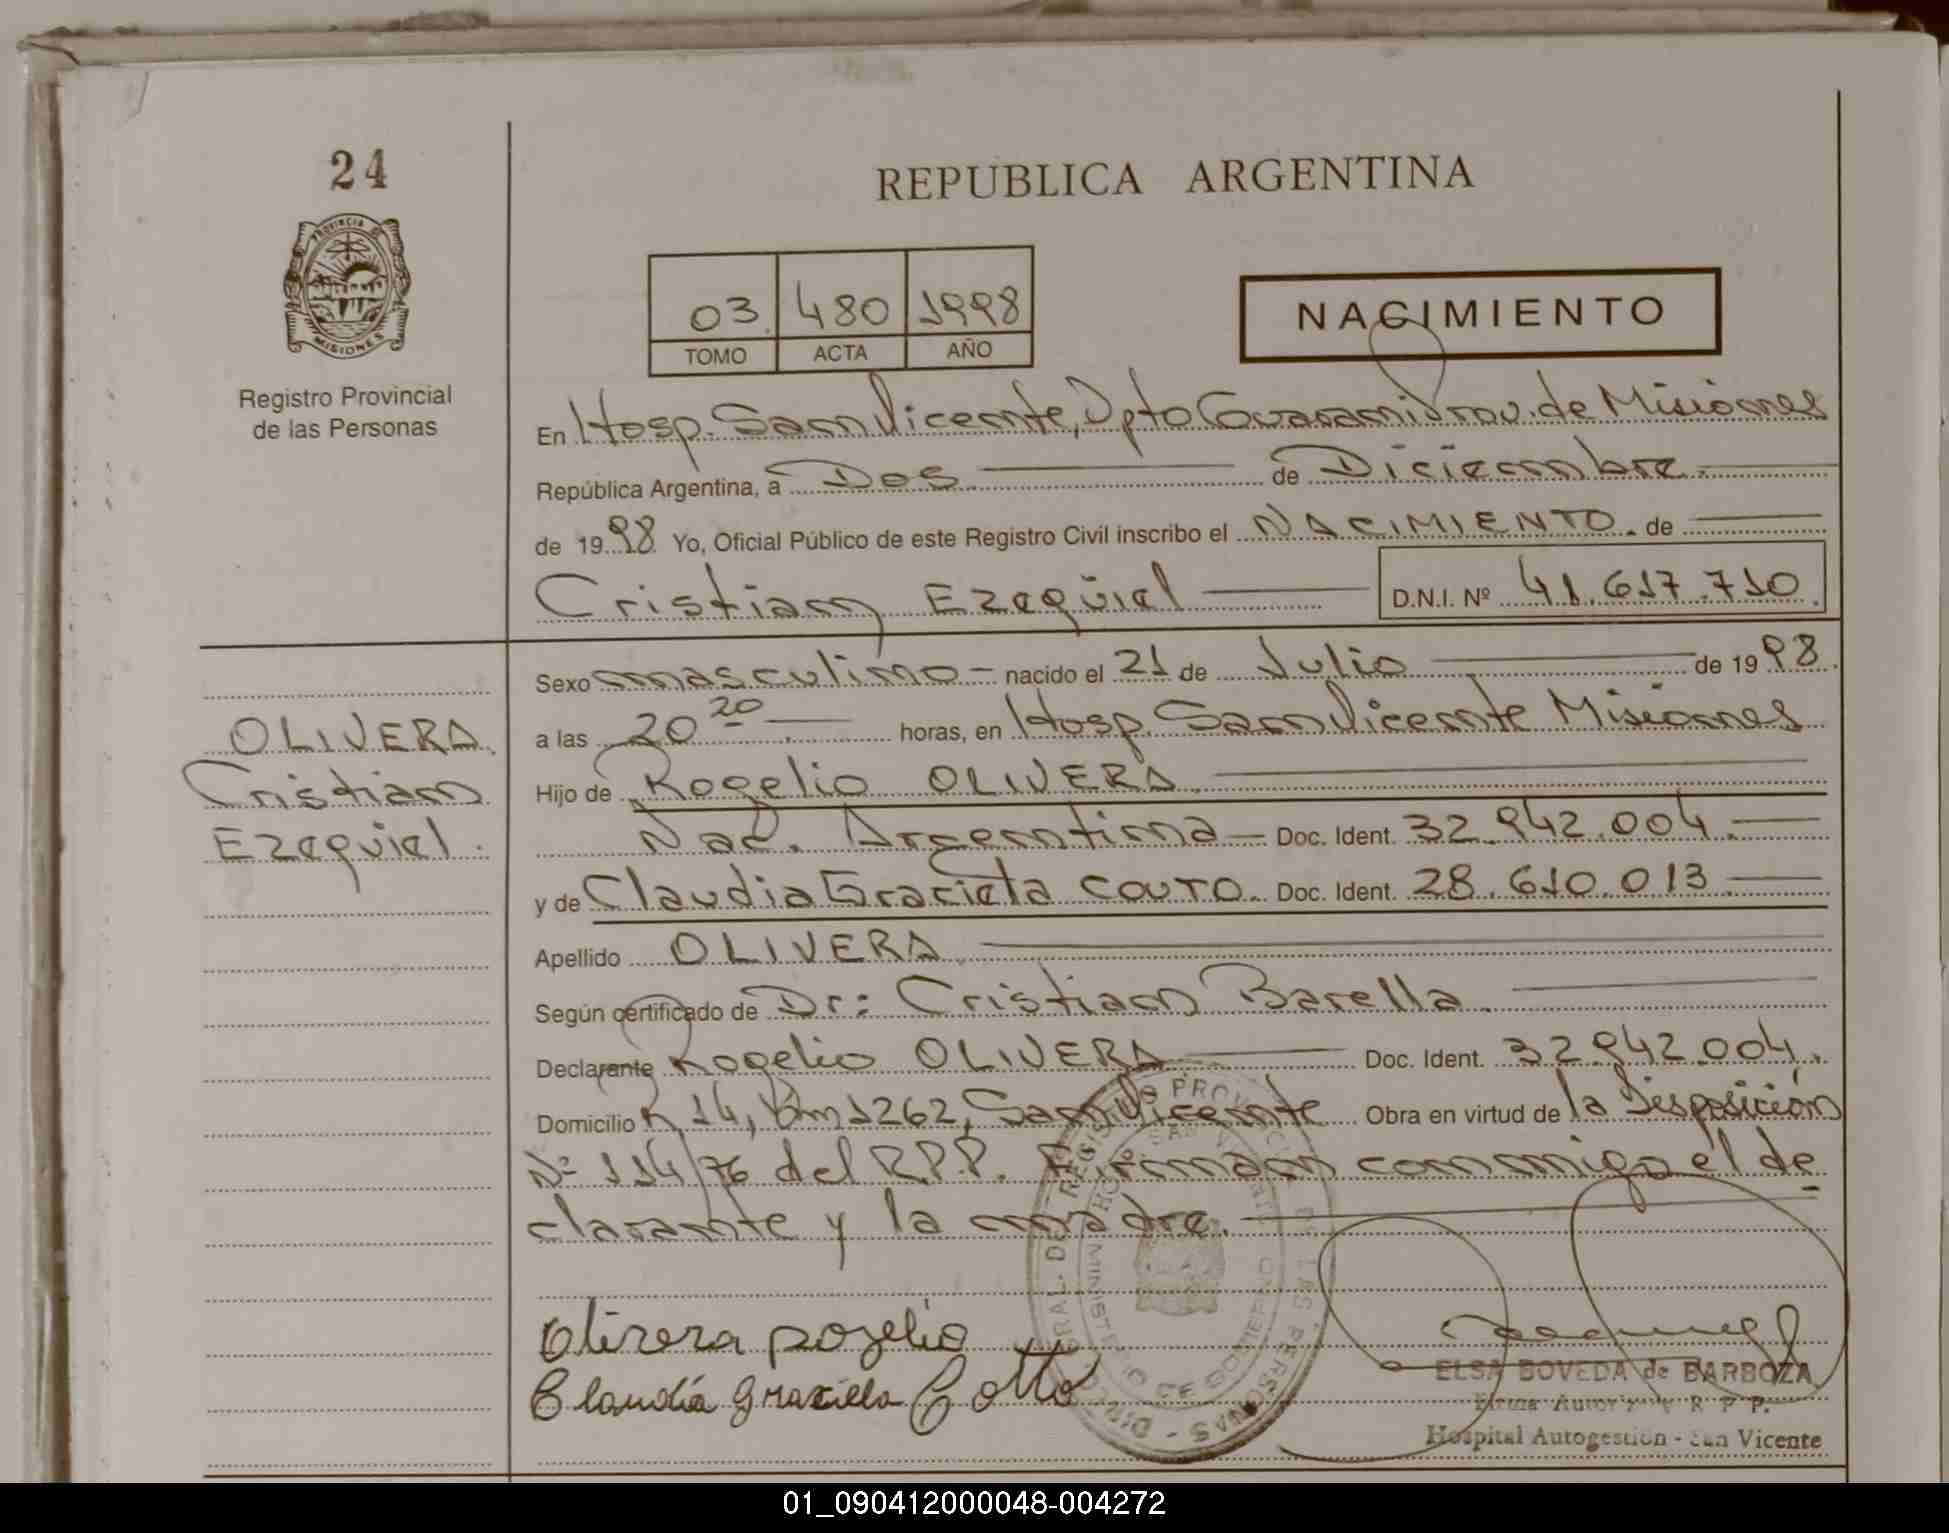 24
REPUBLICA ARGENTINA
PROVINCIA DE
MISIONES
Registro Provincial
de las Personas
03 480 1998
TOMO ACTA AÑO
NACIMIENTO
En Hosp. San Vicente, Dpto Guarani Prov. de Misiones
República Argentina, a Dos de Diciembre
de 1998 Yo, Oficial Público de este Registro Civil inscribo el NACIMIENTO de
Cristian Ezequiel D.N.I. Nº 41.617.710
OLIVERA
Cristian
Ezequiel.
Sexo masculino - nacido el 21 de Julio de 1998
a las 20 20 horas, en Hosp. San Vicente Misiones
Hijo de Rogelio OLIVERA
Nac. Argentina - Doc. Ident. 32.942.004.
y de Claudia Graciela COUTO. Doc. Ident. 28.610.013
Apellido OLIVERA
Según certificado de Dr: Cristian Barella.
Declarante Rogelio OLIVERA Doc. Ident. 32.942.004.
Domicilio R 14, Km 1262, San Vicente Obra en virtud de la Disposición
Nº 114/76 del R.P.P. Firman conmigo el de
clarante y la madre.
Olivera Rogelio
Claudia Graciela Cotto
ELSA BOVEDA de BARBOZA
Firma Autoriz R P P.
Hospital Autogestion - San Vicente
01_090412000048-004272